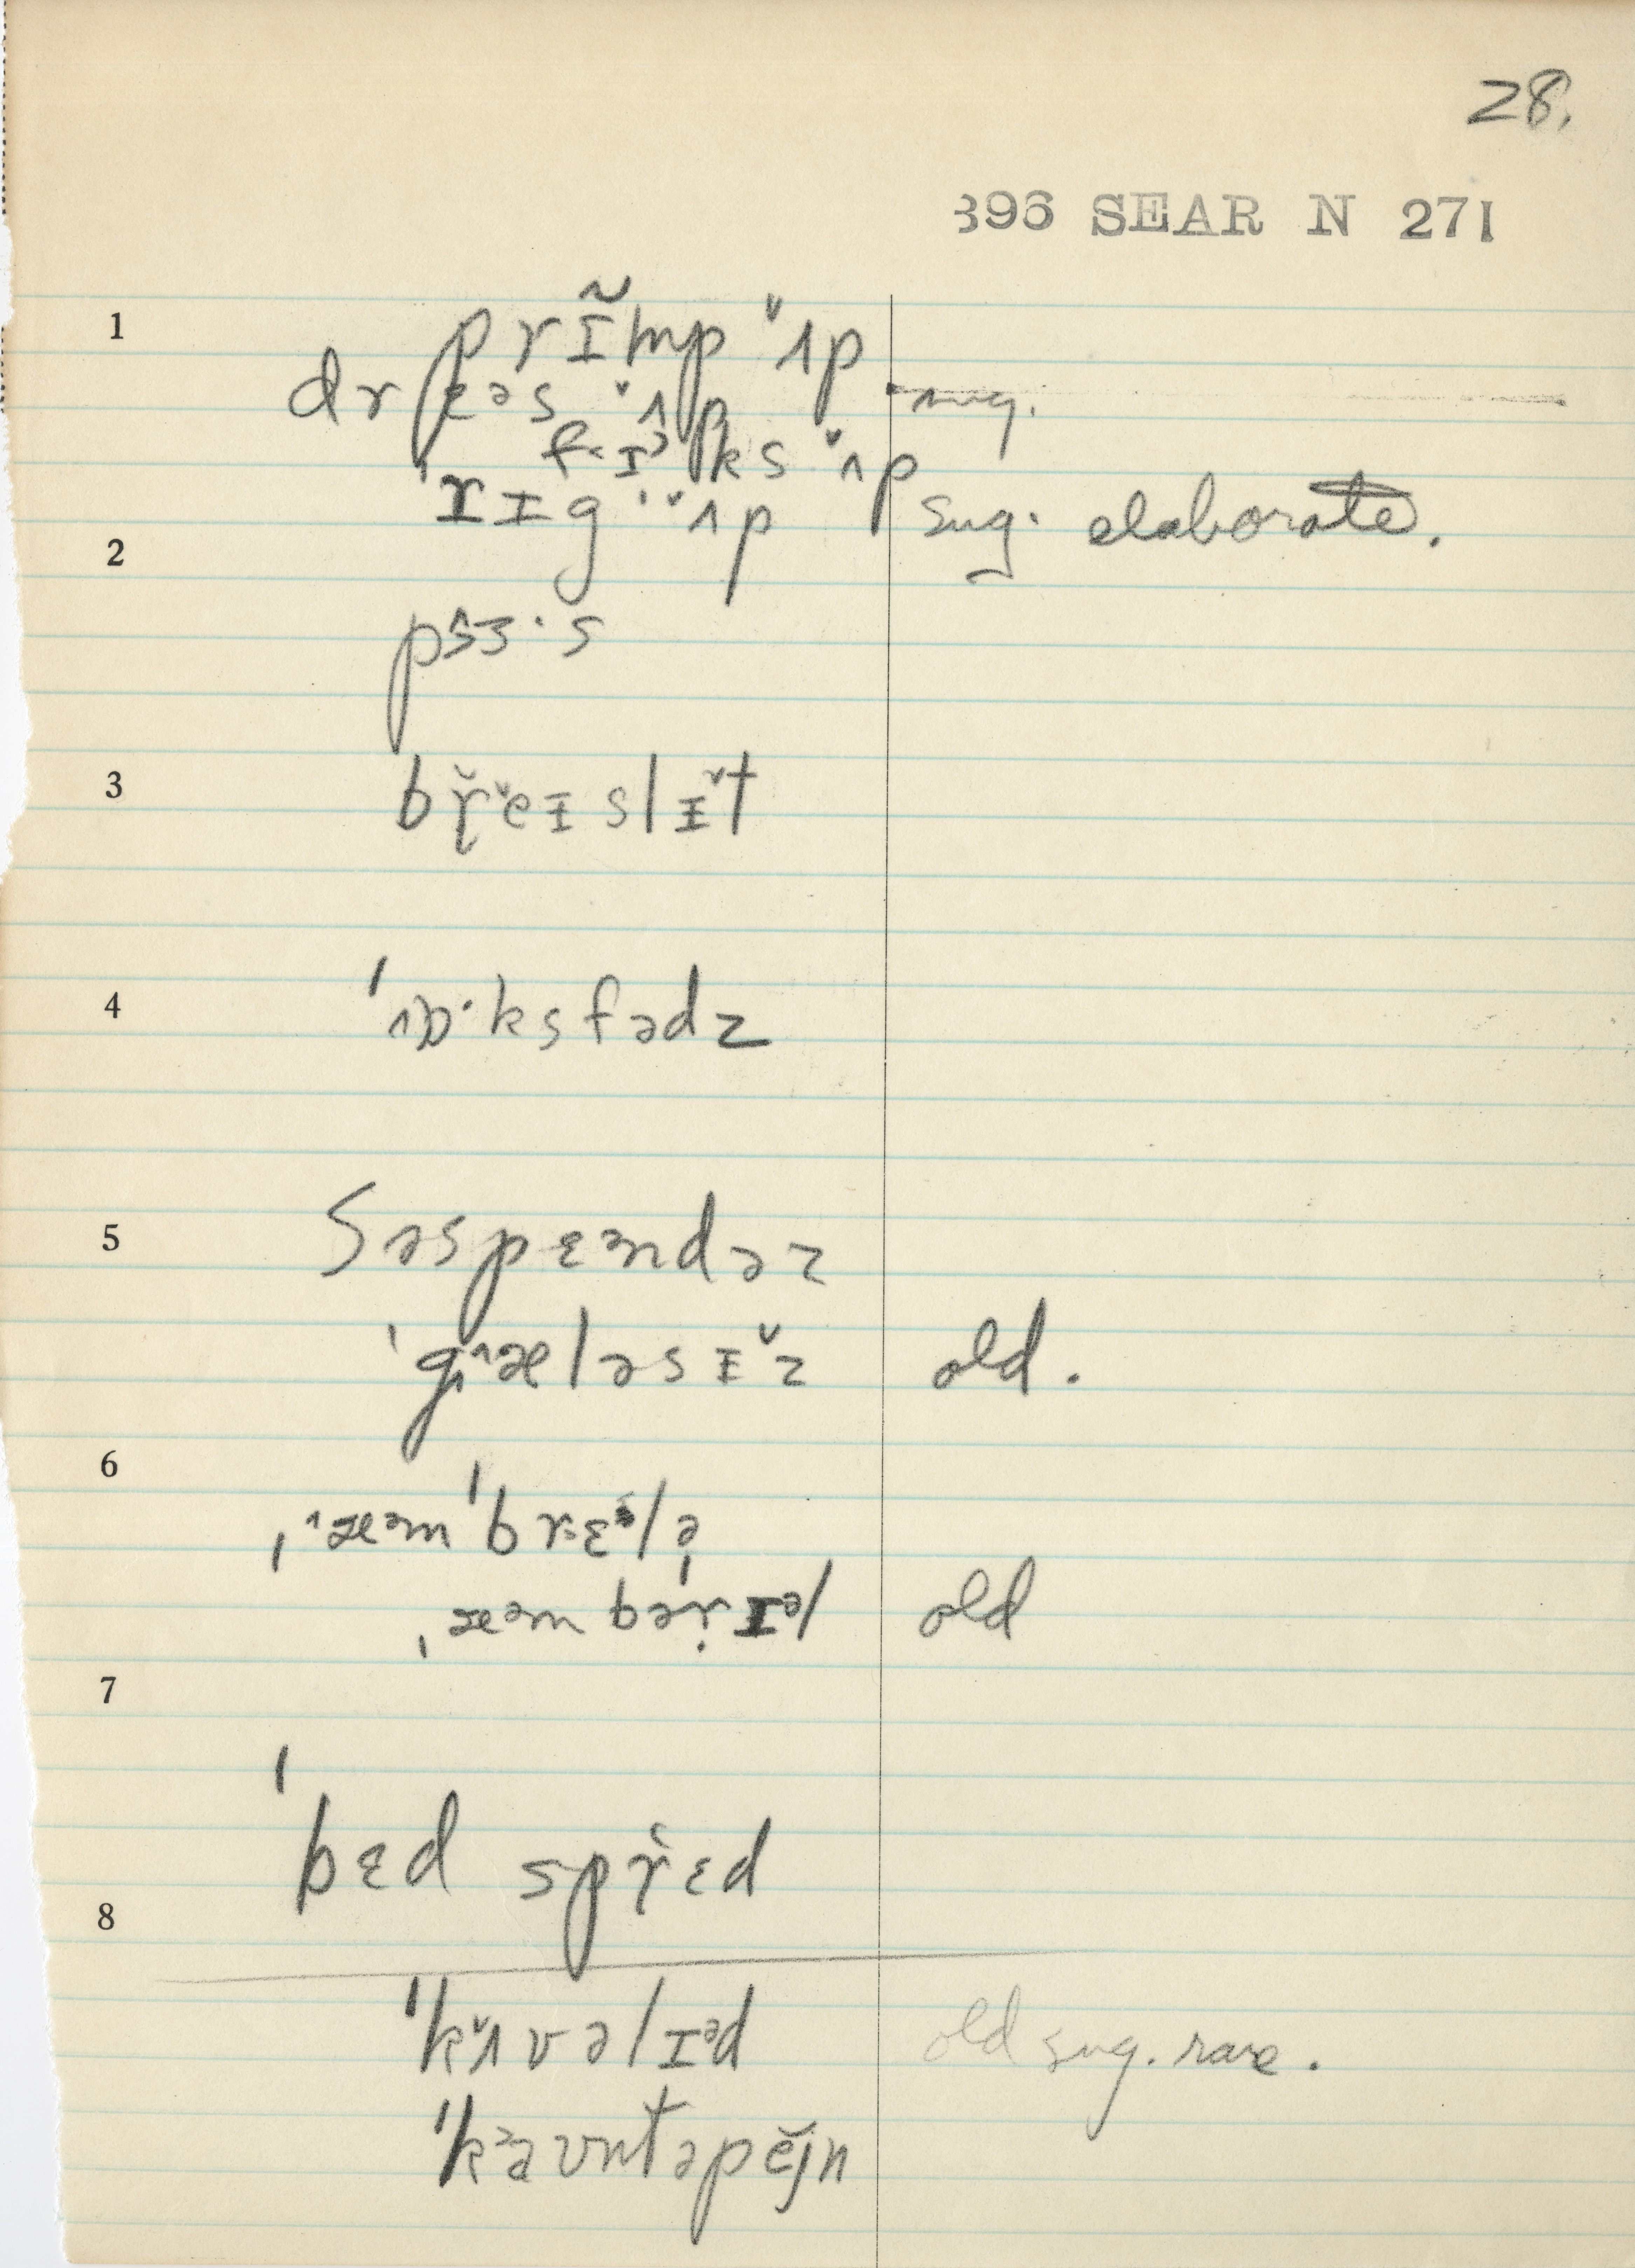 28.
396 SEAR N 271
1 prĩmp ˇʌp
drɛəs ˇʌp sug.
fɪᵊks ˇʌp
2 ˈrɪg ˈˇʌp sug. elaborate.
pɜɜ·s
3 br̥eɪslɪˇt
4 ˈɒ·ksfədz
5 səspɛəndəz
ˈgæləsɪˇz old.
6 ˌæᵊmˈbrɛᵊlə
ˌæᵊmbəˈrɪᵊl old
7
ˈbɛd sprɛd
8
ˈkʌvəlɪᵊd old sug. rare.
ˈkaʊntəpĕjn